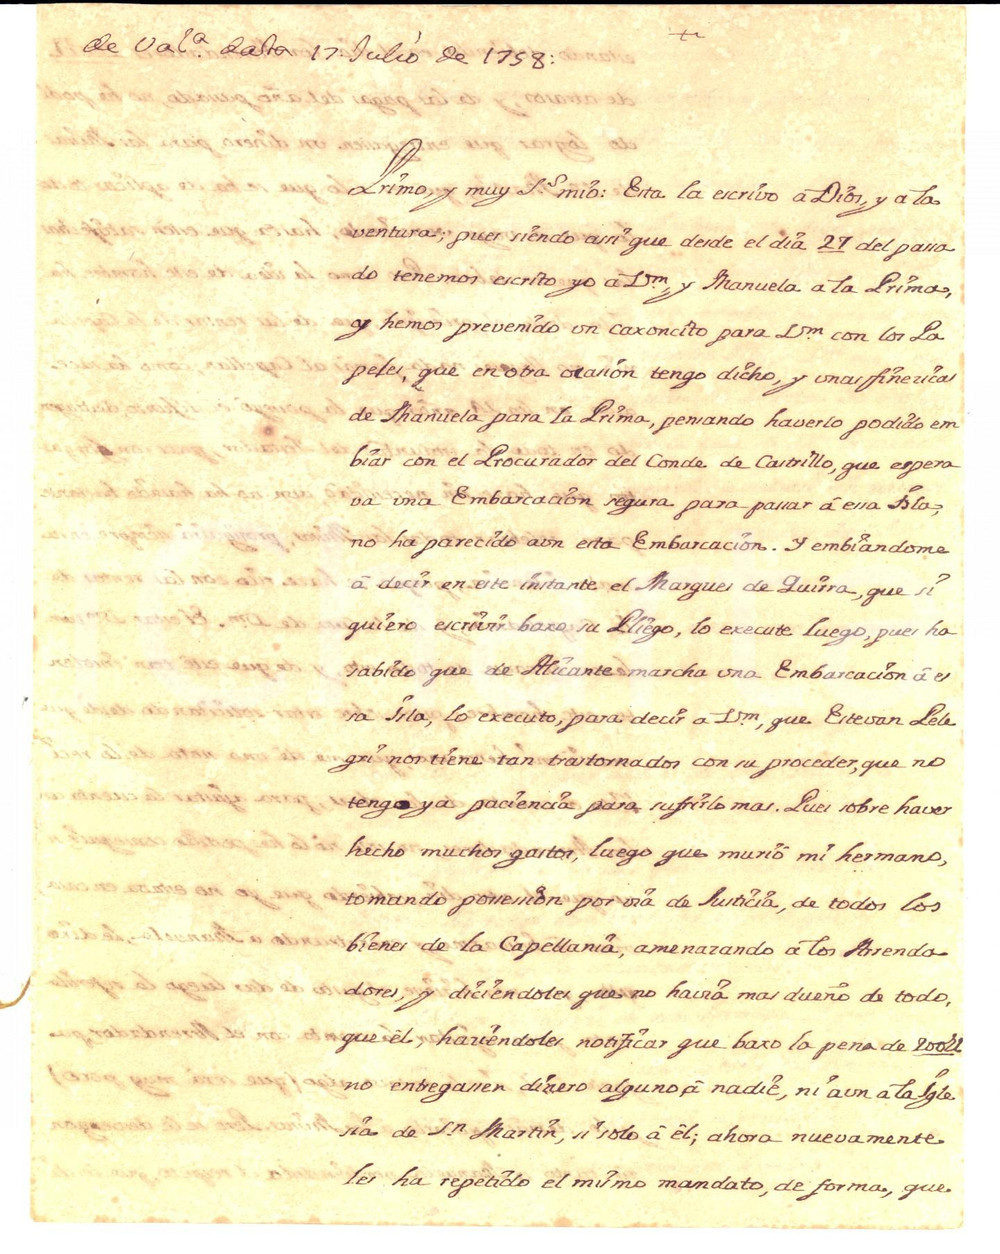 de Val.ª 17 Julio de 1758:
Primo, y muy S.r mio: Esta la escrivo â Dios, y a la
ventura; pues siendo assi que desde el dia 27 del passa
do tenemos escrito yo a Vm, y Manuela a la Prima,
y hemos prevenido un caxoncito para Vm con los Pa
peles, que en otra ocasion tengo dicho, y unas finezicas
de Manuela para la Prima, pensando haverlo podido em
biar con el Procurador del Conde de Castrillo, que espera
va una Embarcacion segura para passar â essa Isla,
no ha parecido aun esta Embarcacion. Y embiandome
â decir en este instante el Marques de Quirra, que si
quiero escrivir baxo su Pliego, lo execute luego, pues ha
sabido que de Alicante marcha una Embarcacion â es
sa Isla, lo executo, para decir a Vm, que Estevan Pele
gri nos tiene tan trastornados con su proceder, que no
tengo ya paciencia para sufrirlo mas. Pues sobre haver
hecho muchos gastos, luego que muriô mi hermano,
tomando possession por via de Justicia, de todos los
bienes de la Capellania, amenazando a los Arrenda
dores, y diciendoles que no havia mas dueño de todo,
que êl, haciendoles notificar que baxo la pena de 200ll
no entregassen dinero alguno â nadie, ni aun a la Igle
sia de S.n Martin, si solo â êl; ahora nuevamente
les ha repetido el mismo mandato, de forma, que